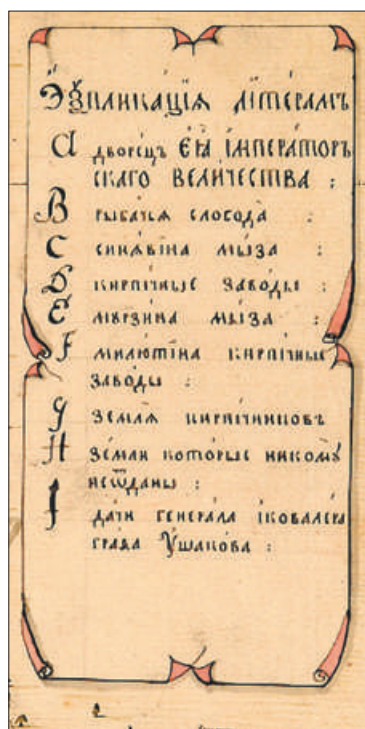 Эѯпликація літерамъ
A дворецъ Еѧ імператоръ
скаго величества :
B рыбачьѧ слобода :
C синѧвіна мыза :
D кирпичные заводы :
E мурзина мыза :
F милютіна кирпичные
заводы :
G землѧ кирпичниковъ
H земли которые никому
неѿданы :
I дачи генерала іковалера
граѳа Ушакова :